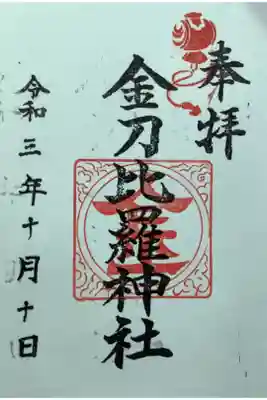 奉拝
金刀比羅神社
令和三年十月十日